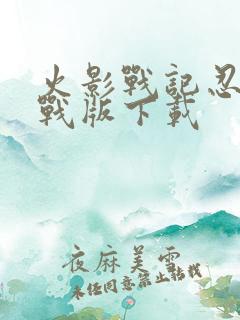 火影戰記忍
戰版下載
夜麻美雪
未经同意禁止转载